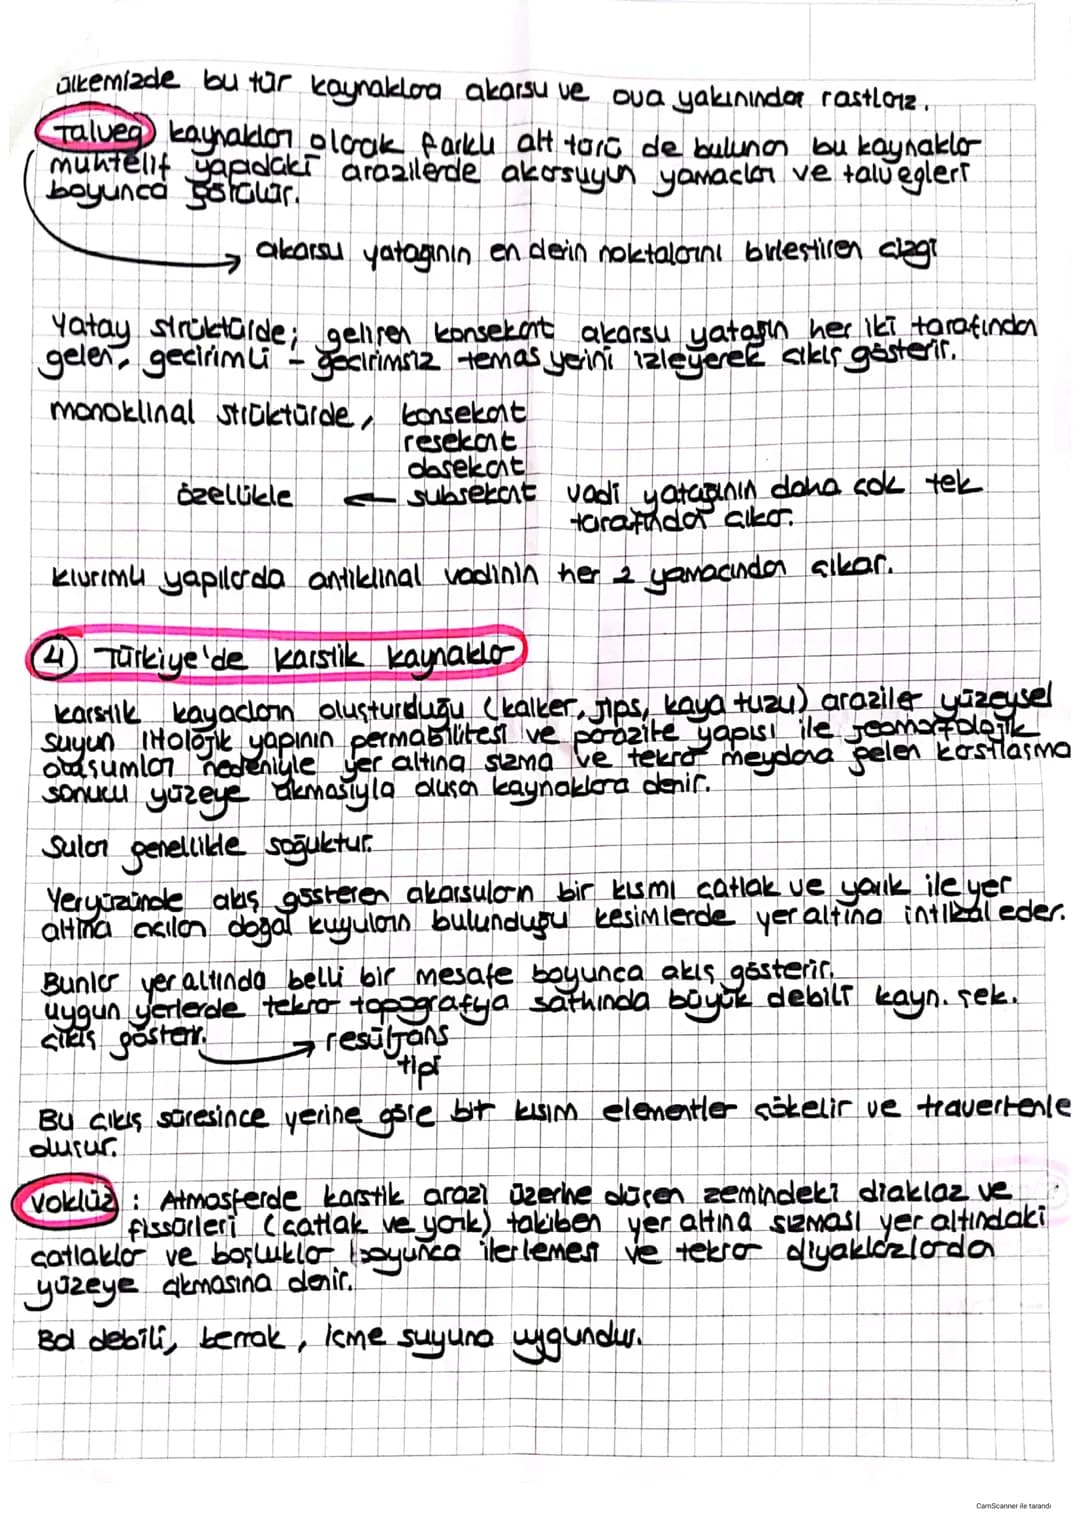 ülkemizde bu tür kaynaklara akarsu ve ova yakınından rastlarız.
Talveg kaynakları olarak farklı alt türü de bulunan bu kaynaklar
muhtelif yapıdaki arazilerde akarsuyun yamaçları ve talvegleri
boyunca görülür.
akarsu yatağının en derin noktalarını birleştiren çizgi
Yatay strüktürde; gelişen konsekant akarsu yatağın her iki tarafından
gelen, geçirimli - geçirimsiz temas yerini izleyerek çıkış gösterir.
monoklinal strüktürde, konsekant
resekant
obsekant
özellikle ← subsekant vadi yatağının daha çok tek
tarafından çıkar.
kıvrımlı yapılarda antiklinal vadinin her 2 yamacından çıkar.
4 Türkiye'de karstik kaynaklar
karstik kayaçların oluşturduğu (kalker, jips, kaya tuzu) araziler yüzeysel
suyun litolojik yapının permabilitesi ve porozite yapısı ile jeomorfolojik
oluşumlar nedeniyle yer altına sızma ve tekrar meydana gelen karstlaşma
sonucu yüzeye çıkmasıyla oluşan kaynaklara denir.
Suları genellikle soğuktur.
Yeryüzünde akış gösteren akarsuların bir kısmı çatlak ve yarık ile yer
altına açılan doğal kuyuların bulunduğu kesimlerde yer altına intikal eder.
Bunlar yer altında belli bir mesafe boyunca akış gösterir.
uygun yerlerde tekrar topografya sathında büyük debili kayn. şek.
çıkış gösterir. → resürjans
tipi
Bu çıkış süresince yerine göre bir kısım elementler çökelir ve travertenle
oluşur.
voklüz : Atmosferde karstik arazi üzerine düşen zemindeki diaklaz ve
fissürleri (çatlak ve yarık) takiben yer altına sızması yer altındaki
çatlaklar ve boşluklar boyunca ilerlemesi ve tekrar diyaklazlardan
yüzeye çıkmasına denir.
Bol debili, berrak, içme suyuna uygundur.
CamScanner ile tarandı